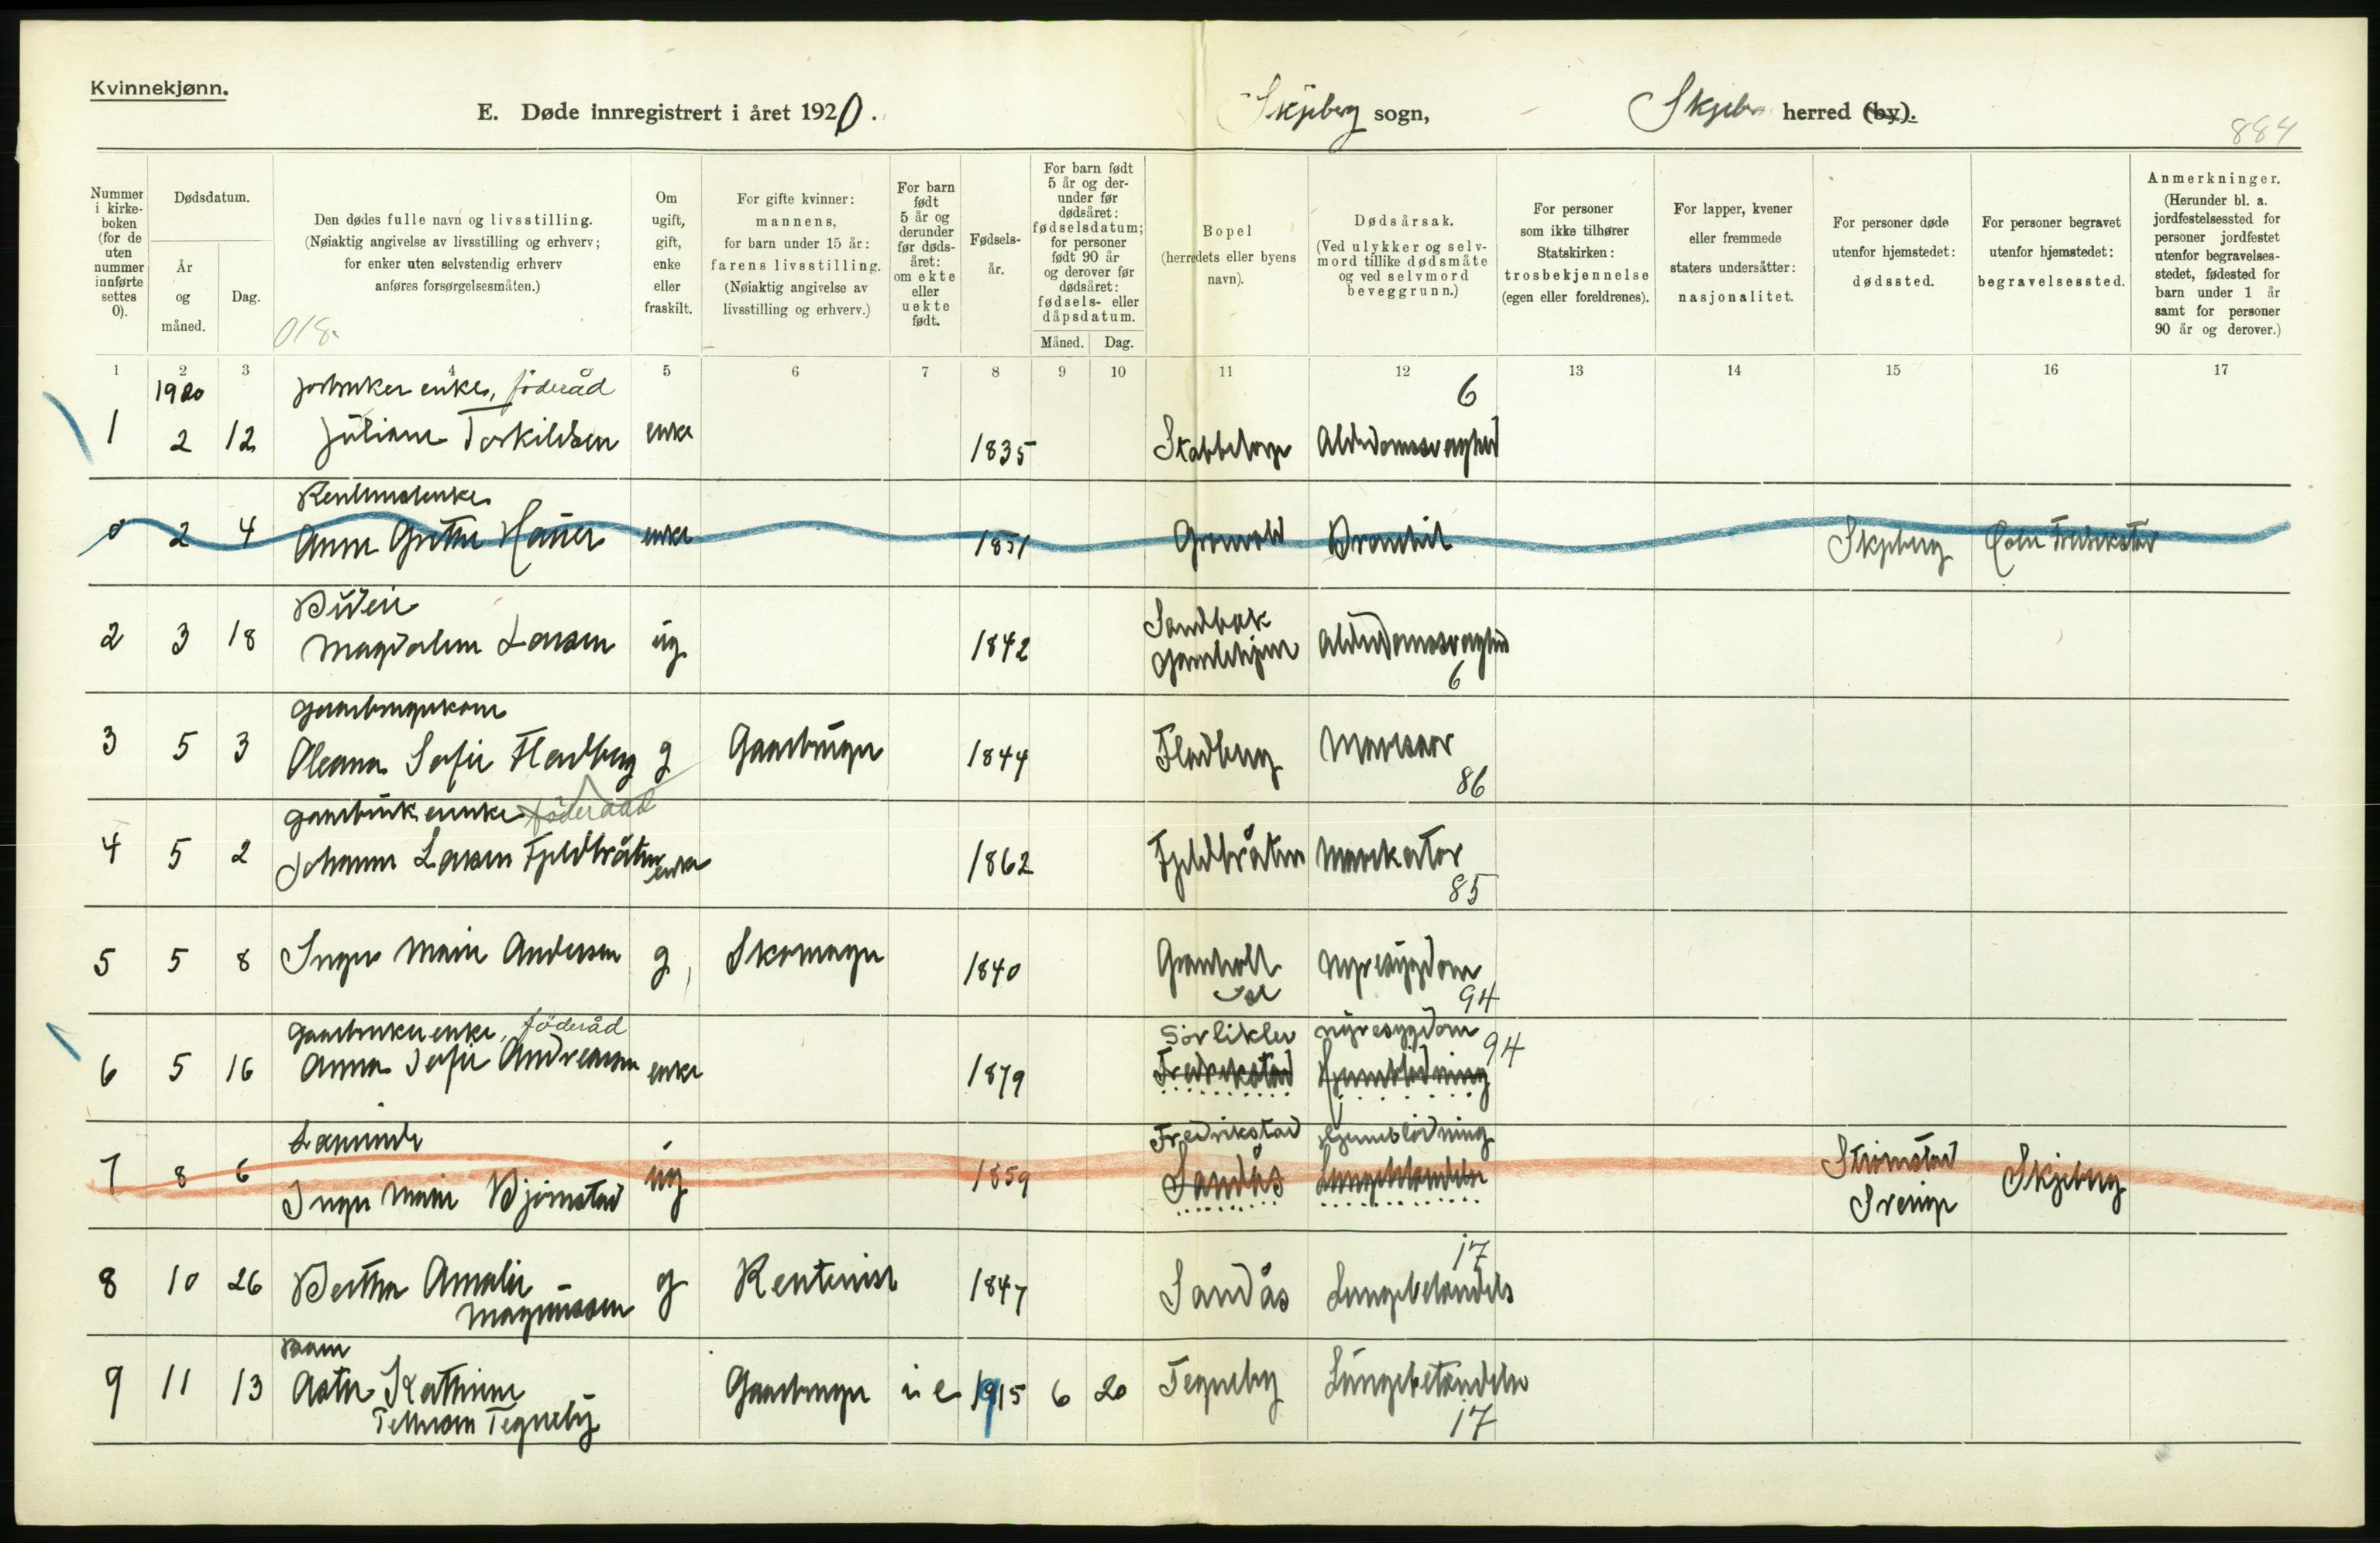 Kvinnekjønn.
E. Døde innregistrert i året 1920.
Skjeberg sogn,
Skjeberg herred (by).
884
Nummer i kirkeboken (for de uten nummer innførte settes 0).
Dødsdatum.
År og måned.
Dag.
Den dødes fulle navn og livsstilling.
(Nøiaktig angivelse av livsstilling og erhverv;
for enker uten selvstendig erhverv
anføres forsørgelsesmåten.)
018.
Om ugift, gift, enke eller fraskilt.
For gifte kvinner:
mannens,
for barn under 15 år:
farens livsstilling.
(Nøiaktig angivelse av
livsstilling og erhverv.)
For barn født 5 år og derunder før dødsåret: om ekte eller uekte født.
Fødselsår.
For barn født 5 år og derunder før dødsåret: fødselsdatum; for personer født 90 år og derover før dødsåret: fødsels- eller dåpsdatum.
Måned.
Dag.
Bopel
(herredets eller byens
navn).
Dødsårsak.
(Ved ulykker og selvmord tillike dødsmåte og ved selvmord beveggrunn.)
For personer
som ikke tilhører
Statskirken:
trosbekjennelse
(egen eller foreldrenes).
For lapper, kvener
eller fremmede
staters undersåtter:
nasjonalitet.
For personer døde
utenfor hjemstedet:
dødssted.
For personer begravet
utenfor hjemstedet:
begravelsessted.
Anmerkninger.
(Herunder bl. a. jordfestelsessted for personer jordfestet utenfor begravelsesstedet, fødested for barn under 1 år samt for personer 90 år og derover.)
1 2 3 4 5 6 7 8 9 10 11 12 13 14 15 16 17
1920 enke, föderåd 6
1 2 12 Juliane Torkildsen enke 1835 Skabbetorp Alderdomssvaghed
0 2 4 Anne Grethe enke 1851 Skjeberg Fredrikstad
Budeie Sandbæk
2 3 18 Magdalene Larsen ug 1842 Gamlehjem Alderdomssvaghed
6
Gaardbrugerkone
3 5 3 Oleana Sofie Fladberg g Gaardbruger 1844 Fladberg
86
enke föderaad
4 5 2 Johanne Larsen Fjeldbråten enke 1862 Fjeldbråten
85
5 5 8 Inger Marie Andersen g Skomager 1840 Granholt Nyresygdom
94
Gaardbruker enke, föderåd Sörlikler nyresygdom 94
6 5 16 Anna Sofie Andreassen enke 1879 Fredrikstad Hjerneblödning
Fredrikstad Hjerneblödning
7 8 6 Inger Marie Bjørnstad ug 1859 Sandås Lungebetændelse Strømstad Skjeberg
Sverige
17
8 10 26 Bertha Amalie g Rentenist 1847 Sandås Lungebetændelse
Magnussen
Barn
9 11 13 Kathrine Gaardbruger 1915 6 20 Tegneby Lungebetændelse
Tegneby 17